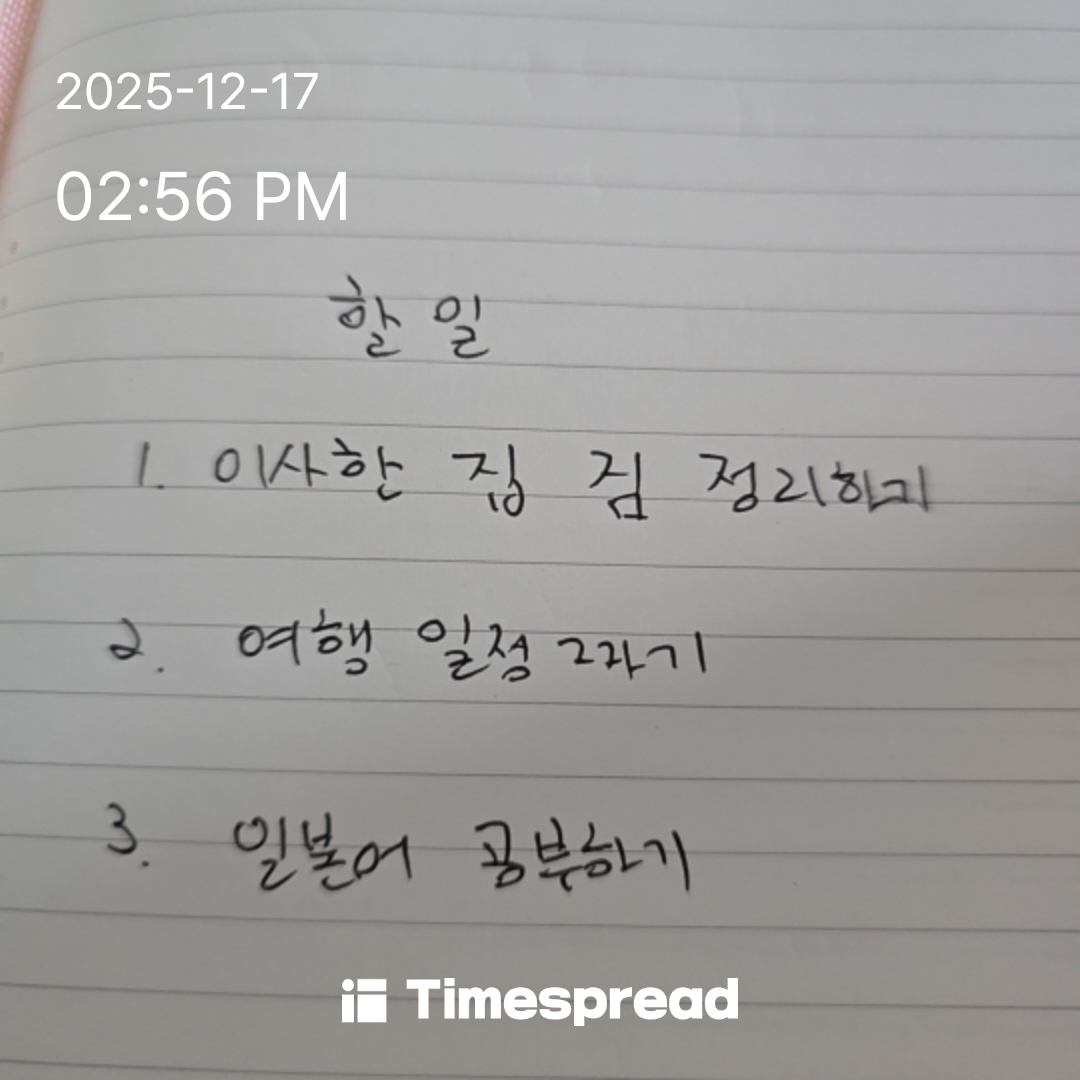 2025-12-17
02:56 PM
할 일
1. 이사한 집 짐 정리하기
2. 여행 일정 짜기
3. 일본어 공부하기
Timespread